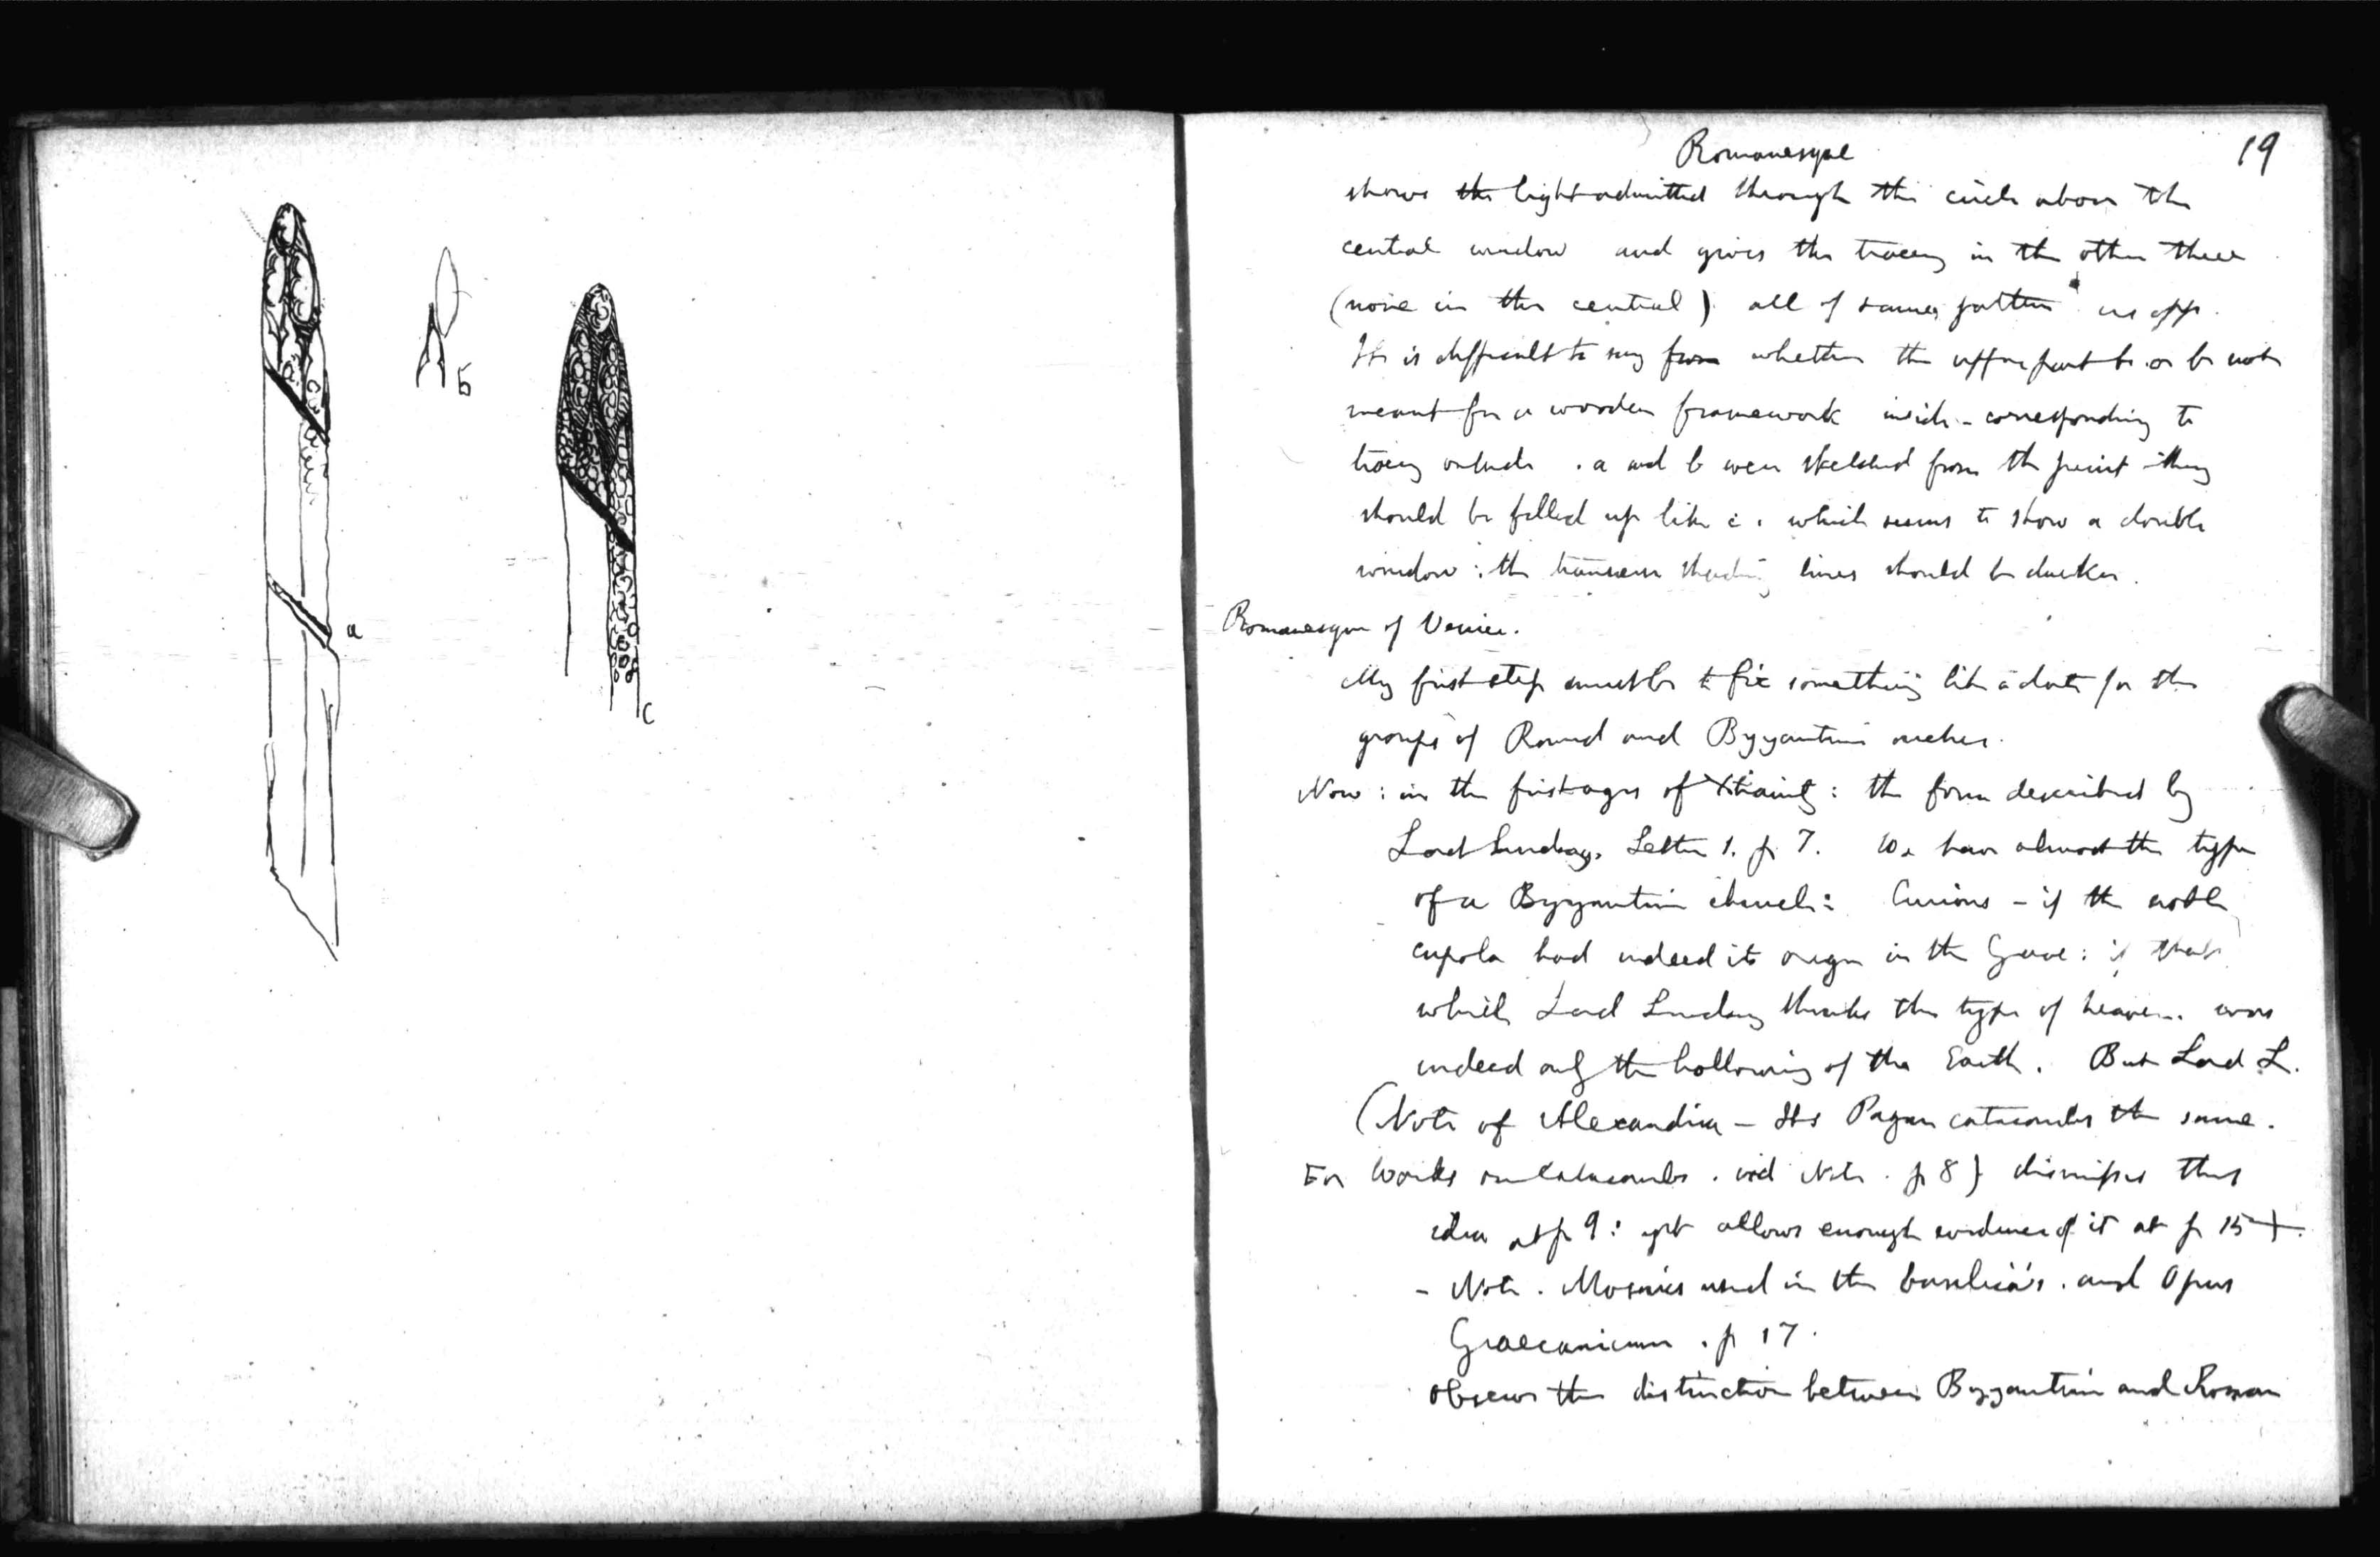 a
b
c
Romanesque
19
shows the light admitted through the circle above the
central window and gives the tracery in the other three
(none in the central) all of same pattern as opp.
It is difficult to say from whether the upper part be or be not
meant for a wooden framework inside - corresponding to
tracery outside . a and b were sketched from the print - they
should be filled up like c . which seems to show a double
window : the transverse shading lines should be darker .
Romanesque of Venice .
My first step must be to fix something like a date for the
groups of Round and Byzantine arches .
Now : in the first ages of Xtianity : the form described by
Lord Lindsay . Letter 1. p 7 . We have almost the type
of a Byzantine church : Curious - if the noble
cupola had indeed its origin in the Grave : if that
which Lord Lindsay thinks the type of heaven . was
indeed only the hollowing of the Earth . But Lord L .
(Note of Alexandria - Its Pagan catacombs the same .
For works on Catacombs . vid Note . p 8 } dismisses this
idea at p 9 : yet allows enough evidence of it at p 15 +
- Note . Mosaics used in the basilica's . and Opus
Graecanicum . p 17 .
Observe the distinction between Byzantine and Roman